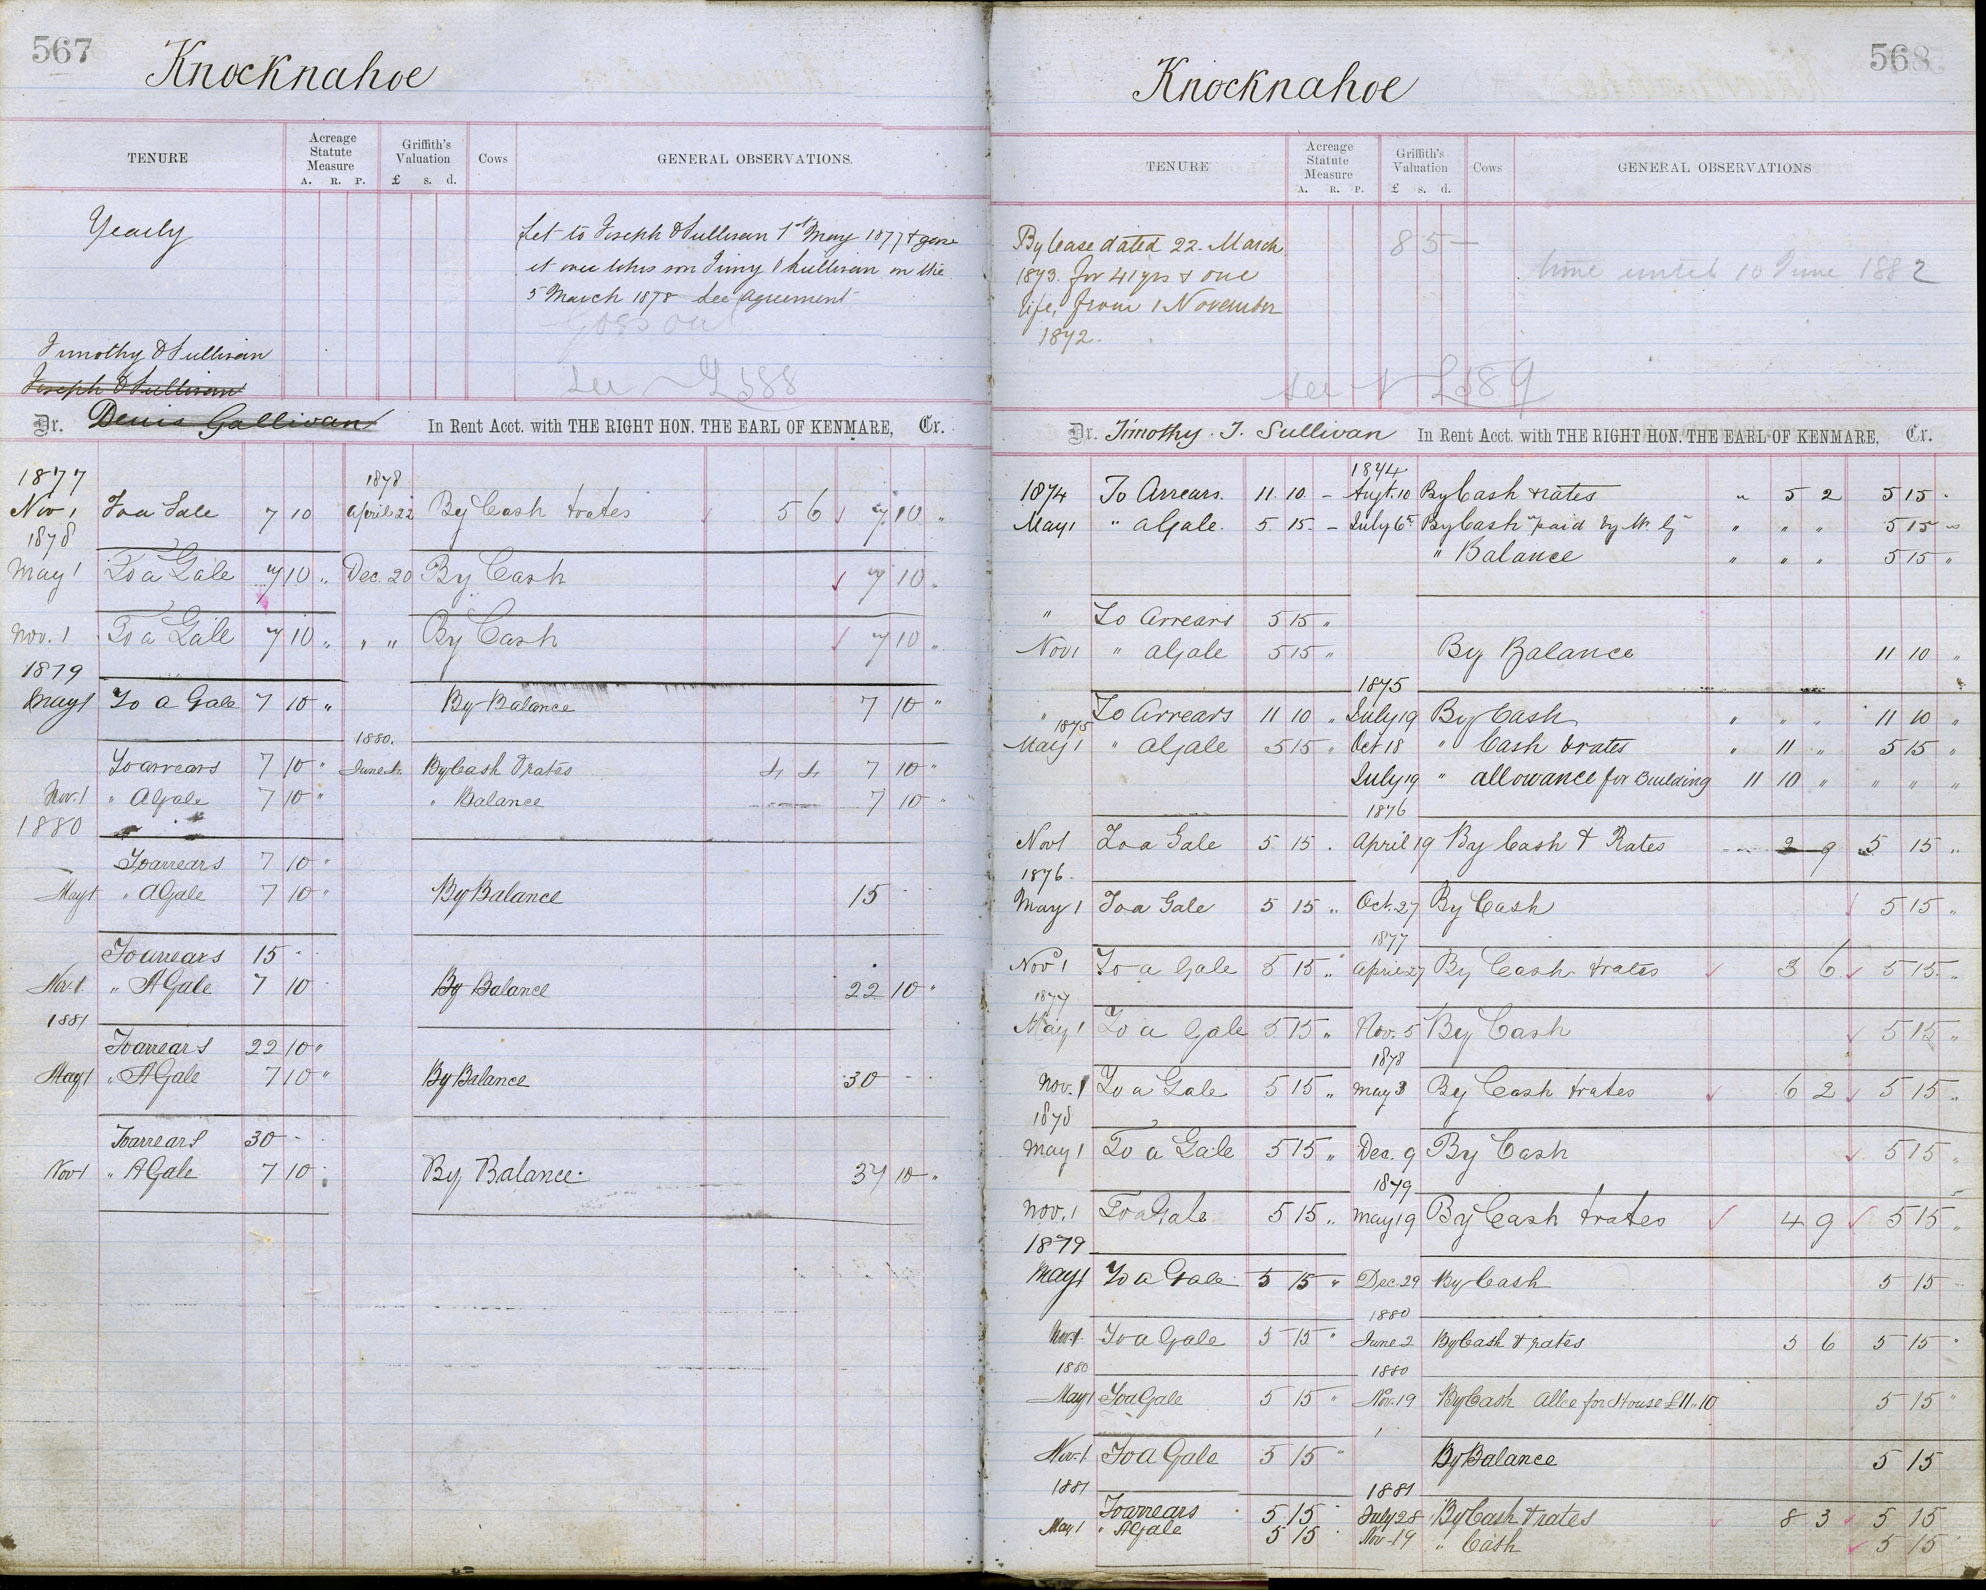 567
Knocknahoe
TENURE
Acreage Statute Measure
A. R. P.
Griffith's Valuation
£ s. d.
Cows
GENERAL OBSERVATIONS.
Yearly
Let to Joseph O'Sullivan 1st May 1877 & gave
it over to his son Timy O'Sullivan on the
5 March 1878 See Agreement
See L588
Timothy O'Sullivan
Joseph O'Sullivan
Dr. Denis Gallivan In Rent Acct. with THE RIGHT HON. THE EARL OF KENMARE, Cr.
1877 1878
Nov 1 To a Gale 7 10 April 22 By Cash & rates 5 6 7 10 "
1878
May 1 To a Gale 7 10 " Dec. 20 By Cash 7 10 "
Nov. 1 To a Gale 7 10 " " " By Cash 7 10 "
1879
May 1 To a Gale 7 10 " By Balance 7 10 "
1880.
To arrears 7 10 " June By Cash & rates 4 4 7 10 "
Nov. 1 " A Gale 7 10 " " Balance 7 10 "
1880
To arrears 7 10 "
May 1 " A Gale 7 10 " By Balance 15 - -
To arrears 15 - -
Nov. 1 " A Gale 7 10 By Balance 22 10 "
1881
To arrears 22 10 "
May 1 " A Gale 7 10 " By Balance 30 - -
To arrears 30 - -
Nov 1 " A Gale 7 10 : By Balance 37 10 "
568
Knocknahoe
TENURE
Acreage Statute Measure
A. R. P.
Griffith's Valuation
£ s. d.
Cows
GENERAL OBSERVATIONS
By lease dated 22. March
1873. for 41 yrs & one
life, from 1 November
1872.
8 5 -
time until 10 June 1882
see L589
Dr. Timothy. J. Sullivan In Rent Acct. with THE RIGHT HON. THE EARL OF KENMARE, Cr.
1874
1874 To Arrears. 11. 10. - Augt. 10 By Cash & rates " 5 2 5 15 "
May 1 " a Gale. 5. 15. - July 6 By Cash paid by " " " 5 15 "
" Balance " " " 5 15 "
" To Arrears 5 15 "
Nov 1 " a Gale 5 15 " By Balance 11 10 "
1875
" To Arrears 11 10 " July 19 By Cash " " " 11 10 "
1875
May 1 " a Gale 5 15 " Oct 18 " Cash & rates " 11 " 5 15 "
July 19 " allowance for Building 11 10 " " " "
1876
Nov 1 To a Gale 5 15 . April 19 By Cash & Rates 2 9 5 15 "
1876.
May 1 To a Gale 5 15 " Oct. 27 By Cash 5 15 "
1877
Nov 1 To a Gale 5 15 " April 27 By Cash & rates 3 6 5 15 "
1877
May 1 To a Gale 5 15 " Nov. 5 By Cash 5 15 "
1878
Nov. 1 To a Gale 5 15 " May 3 By Cash & rates 6 2 5 15 "
1878
May 1 To a Gale 5 15 " Dec. 9 By Cash 5 15 "
1879
Nov. 1 To a Gale 5 15 " May 19 By Cash & rates 4 9 5 15 "
1879
May 1 To a Gale 5 15 " Dec 29 By Cash 5 15
1880
Nov. 1 To a Gale 5 15 " June 2 By Cash & rates 3 6 5 15 "
1880 1880
May 1 To a Gale 5 15 " Nov. 19 By Cash Allce for House £11..10 5 15 "
Nov. 1 To a Gale 5 15 " By Balance 5 15
1881 1881
To arrears 5 15 July 28 By Cash & rates 8 3 5 15
May 1 " A Gale 5 15 Nov. 19 " Cash 5 15